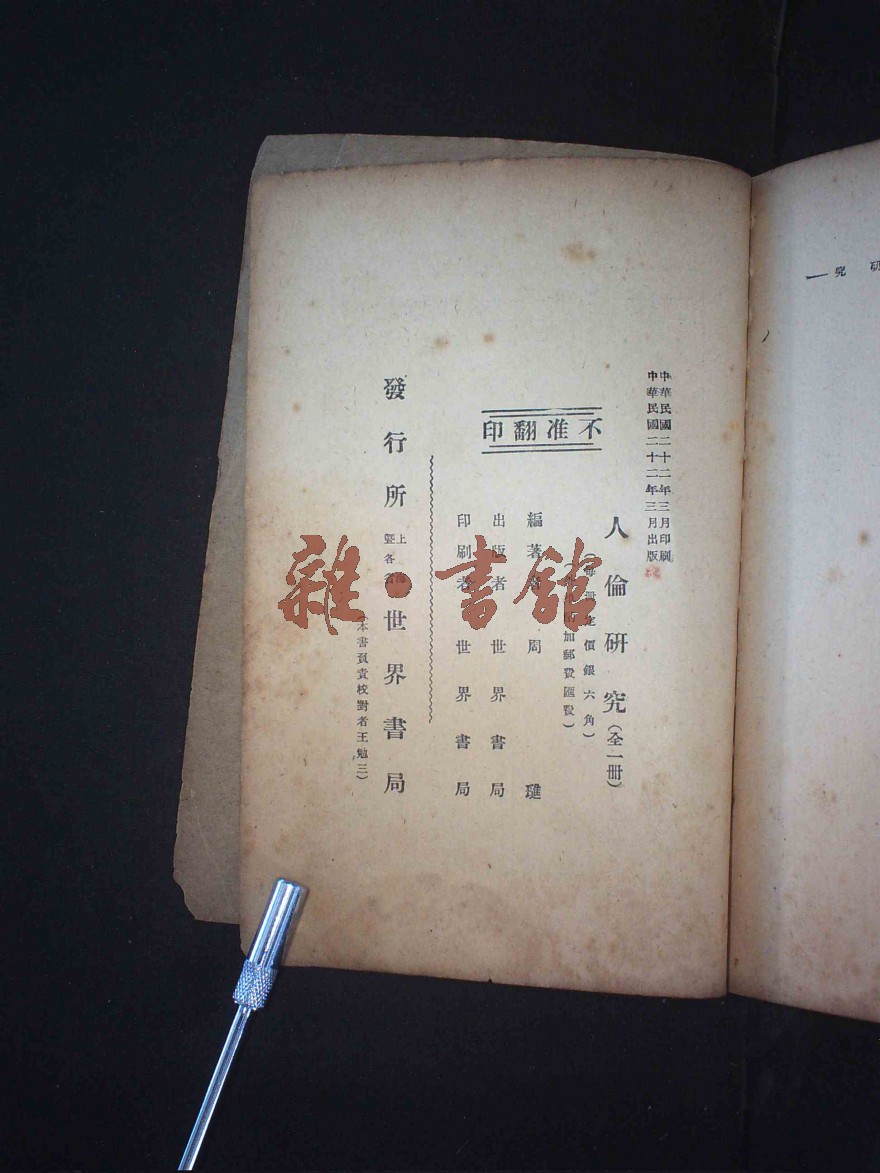 中華民國二十二年三月印刷
中華民國二十二年三月出版
人倫研究(全一冊)
(每冊定價銀六角)
加郵費匯費)
不准翻印
編著者 周
出版者 世界書局
印刷者 世界書局
發行所 上海暨各省 世界書局
(本書負責校對者王勉三)
雜·書館
研究
一